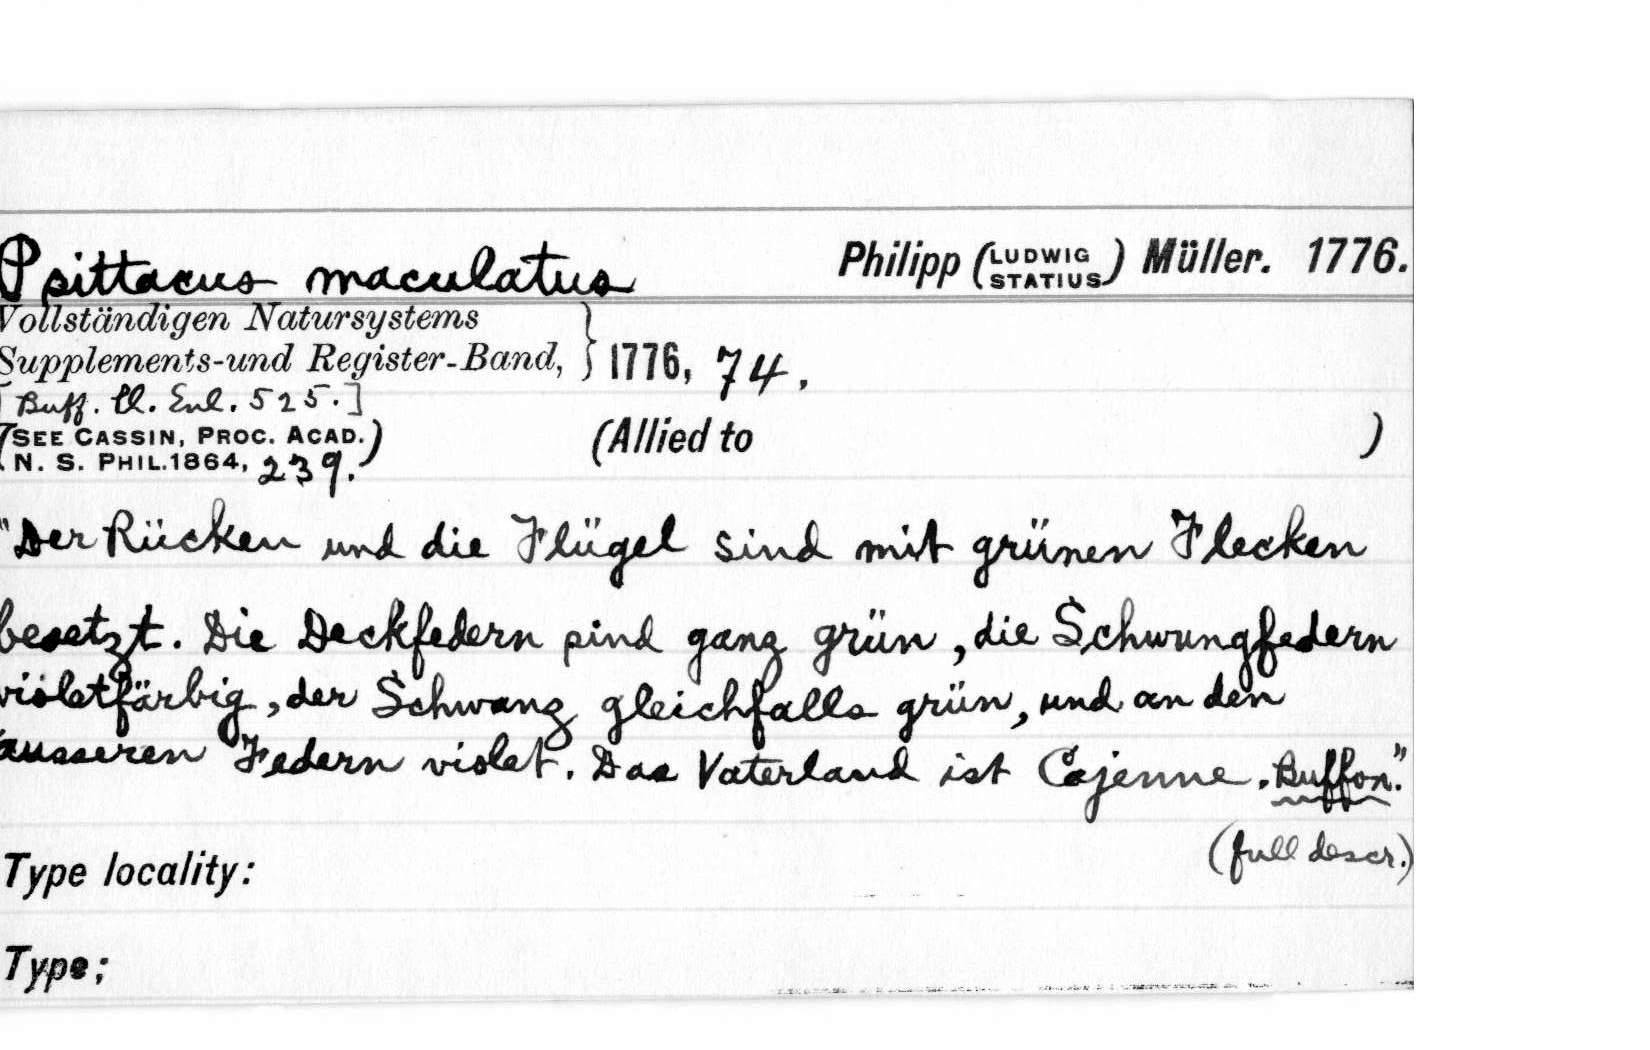 Psittacus maculatus Philipp (LUDWIG STATIUS) Müller. 1776.
Vollständigen Natursystems
Supplements-und Register-Band, } 1776, 74.
[Buff. Pl. Enl. 525.]
(SEE CASSIN, PROC. ACAD.
N. S. PHIL. 1864, 239.) (Allied to )
"Der Rücken und die Flügel sind mit grünen Flecken
besetzt. Die Deckfedern sind ganz grün, die Schwungfedern
violetfärbig, der Schwanz gleichfalls grün, und an den
äusseren Federn violet. Das Vaterland ist Cajenne. Buffon."
(full descr.)
Type locality:
Type;